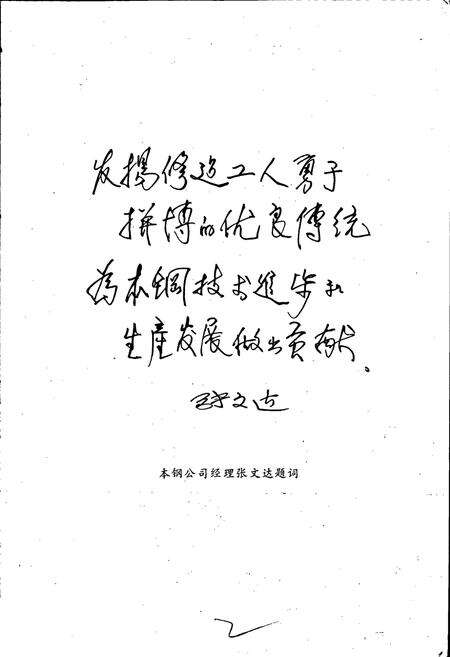 发揚修造工人勇于
拼博的优良傳统
為本钢技术進步和
生產发展做出贡献。
张文达
本钢公司经理张文达题词
2